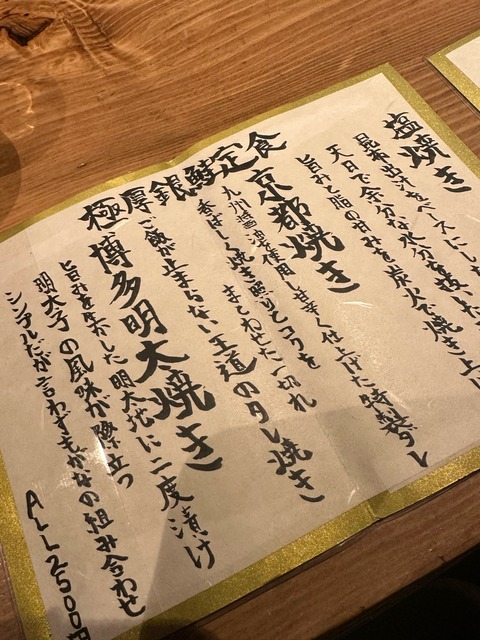 極厚銀鮭定食
塩焼き
昆布出汁をベースにし
天日で余分な水分を抜いた
旨みと脂の甘みを炭火で焼き上
京都焼き
九州醤油を使用し甘辛く仕上げた特製タレ
香ばしく焼き照りとコクを
まとわせた一切れ
ご飯が止まらない王道のタレ焼き
博多明太焼き
旨みを生かした明太地に二度漬け
明太子の風味が際立つ
シンプルだが言わずもがなの組み合わせ
ALL2500円